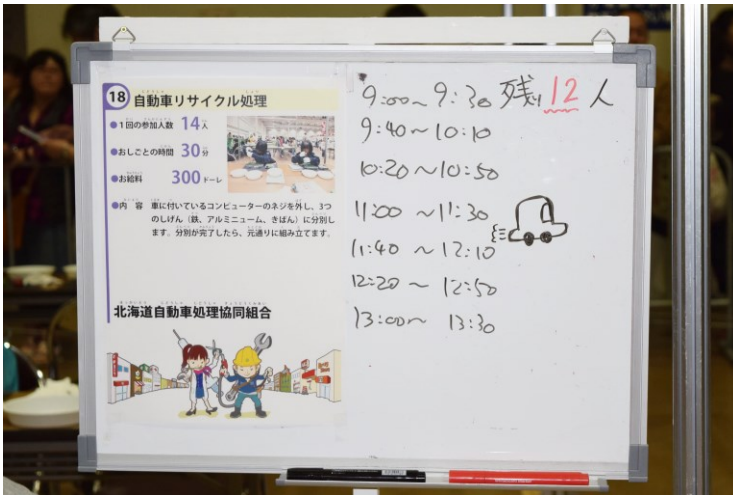 18 自動車リサイクル処理
●1回の参加人数 14人
●おしごとの時間 30分
●お給料 300ドーレ
●内 容 車に付いているコンピューターのネジを外し、3つ
のしげん（鉄、アルミニューム、きばん）に分別し
ます。分別が完了したら、元通りに組み立てます。
北海道自動車処理協同組合
9:00～9:30 残り12人
9:40～10:10
10:20～10:50
11:00～11:30
11:40～12:10
12:20～12:50
13:00～13:30